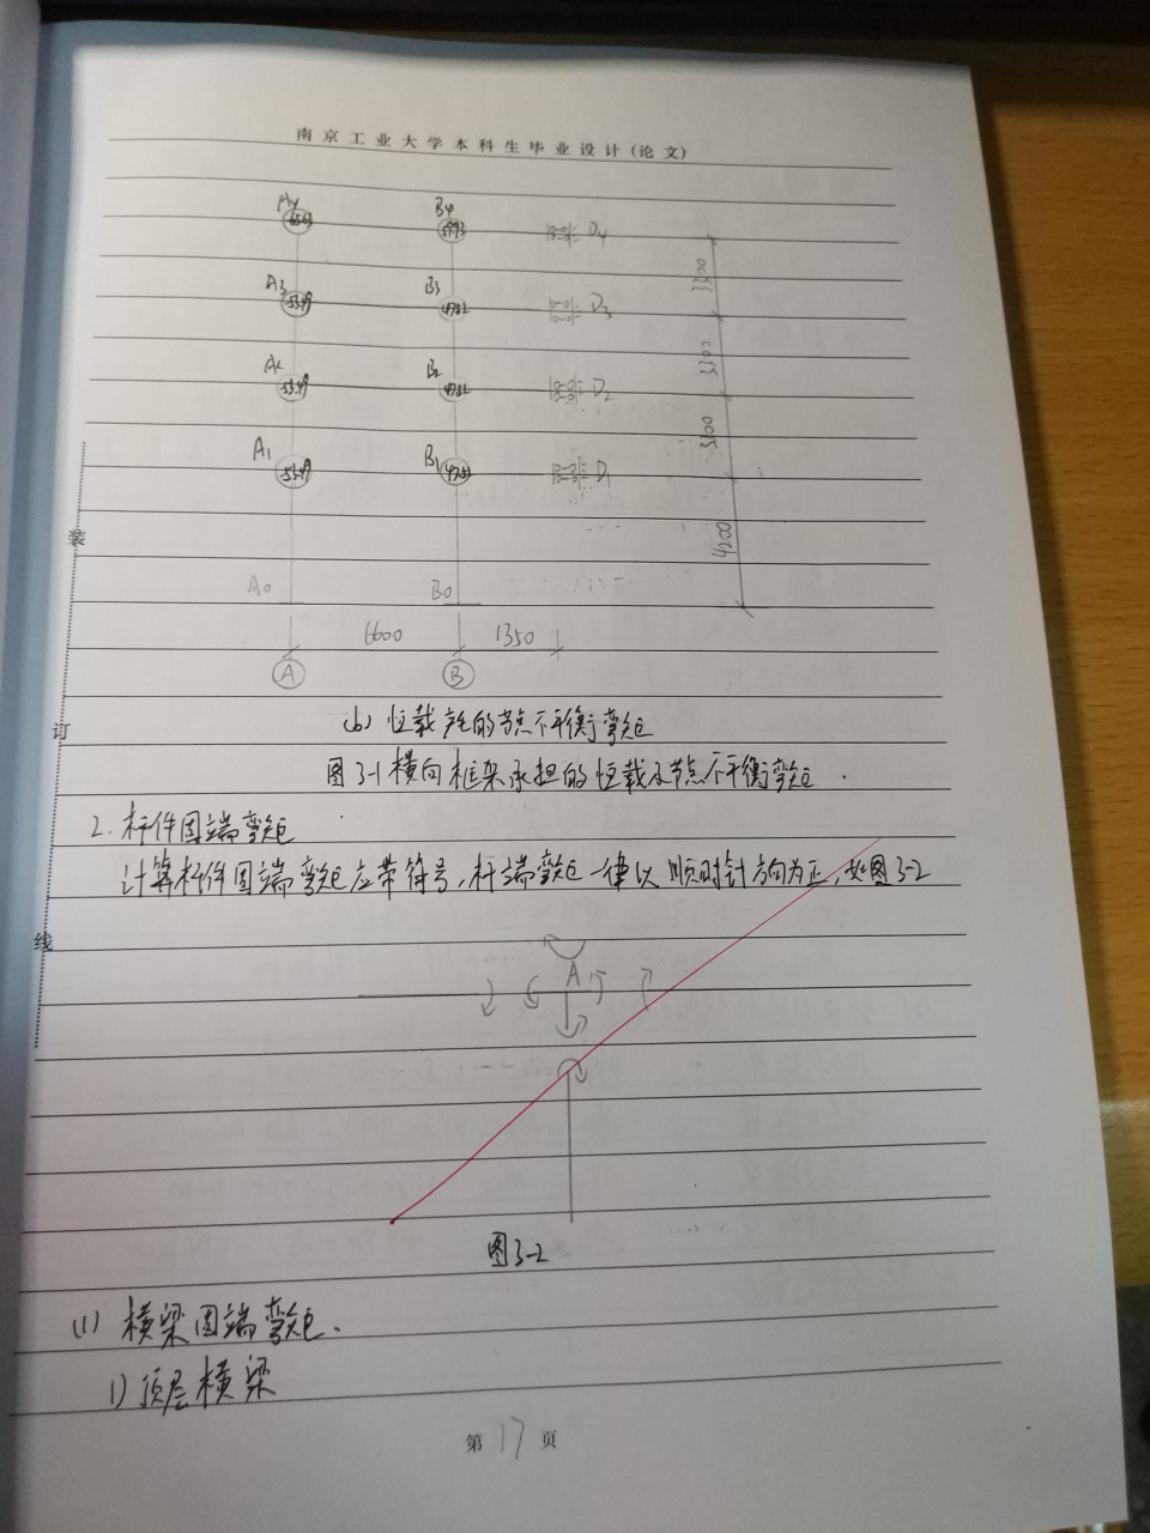 南京工业大学本科生毕业设计(论文)
A4 B4 D4
A3 53.49 B3 47.52 D3 3300
A2 53.49 B2 47.52 D2 3300
A1 53.49 B1 47.52 D1
4200
A0 B0
6600 1350
A B
(b) 恒载产生的节点不平衡弯矩
图3-1 横向框架承担的恒载及节点不平衡弯矩.
2. 杆件固端弯矩
计算杆件固端弯矩应带符号,杆端弯矩一律以顺时针方向为正,如图3-2
A
图3-2
(1) 横梁固端弯矩.
1) 顶层横梁
第 17 页
装
订
线